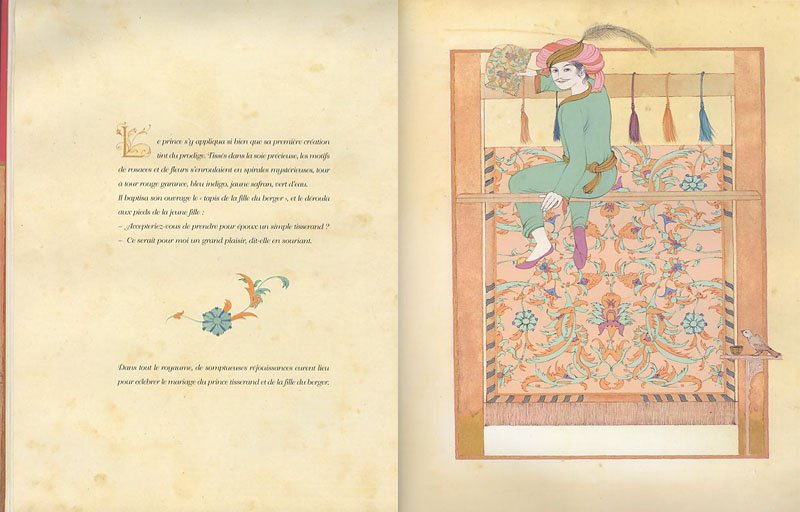 Le prince s'y appliqua si bien que sa première création
tint du prodige. Tissés dans la soie précieuse, les motifs
de rosaces et de fleurs s'enroulaient en spirales mystérieuses, tour
à tour rouge garance, bleu indigo, jaune safran, vert d'eau.
Il baptisa son ouvrage le « tapis de la fille du berger », et le déroula
aux pieds de la jeune fille :
– Accepteriez-vous de prendre pour époux un simple tisserand ?
– Ce serait pour moi un grand plaisir, dit-elle en souriant.
Dans tout le royaume, de somptueuses réjouissances eurent lieu
pour célébrer le mariage du prince tisserand et de la fille du berger.